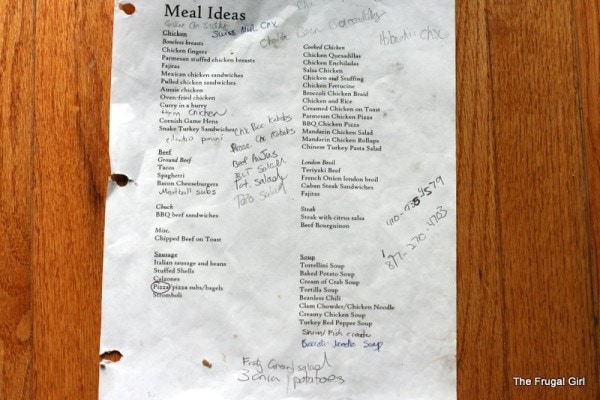 Meal Ideas
Swiss Mush Chx
Chicken
Boneless breasts
Chicken fingers
Parmesan stuffed chicken breasts
Fajitas
Mexican chicken sandwiches
Pulled chicken sandwiches
Aussie chicken
Oven-fried chicken
Curry in a hurry
chicken
Cornish Game Hens
Snake Turkey Sandwiches
cilantro panini
Beef
Ground Beef
Tacos
Spaghetti
Bacon Cheeseburgers
Meatball subs
Chuck
BBQ beef sandwiches
Misc.
Chipped Beef on Toast
Sausage
Italian sausage and beans
Stuffed Shells
Calzones
Pizza/pizza subs/bagels
Stromboli
Chx Rice Kabobs
Beef Au Jus
BLT Salad
Tat. Salad
Taco Salad
Hibachi Chx
Cooked Chicken
Chicken Quesadillas
Chicken Enchiladas
Salsa Chicken
Chicken and Stuffing
Chicken Fettucine
Broccoli Chicken Braid
Chicken and Rice
Creamed Chicken on Toast
Parmesan Chicken Pizza
BBQ Chicken Pizza
Mandarin Chicken Salad
Mandarin Chicken Rollups
Chinese Turkey Pasta Salad
London Broil
Teriyaki Beef
French Onion london broil
Cuban Steak Sandwiches
Fajitas
Steak
Steak with citrus salsa
Beef Bourguinon
Soup
Tortellini Soup
Baked Potato Soup
Cream of Crab Soup
Tortilla Soup
Beanless Chili
Clam Chowder/Chicken Noodle
Creamy Chicken Soup
Turkey Red Pepper Soup
Broccoli Noodle Soup
salad
potatoes
The Frugal Girl